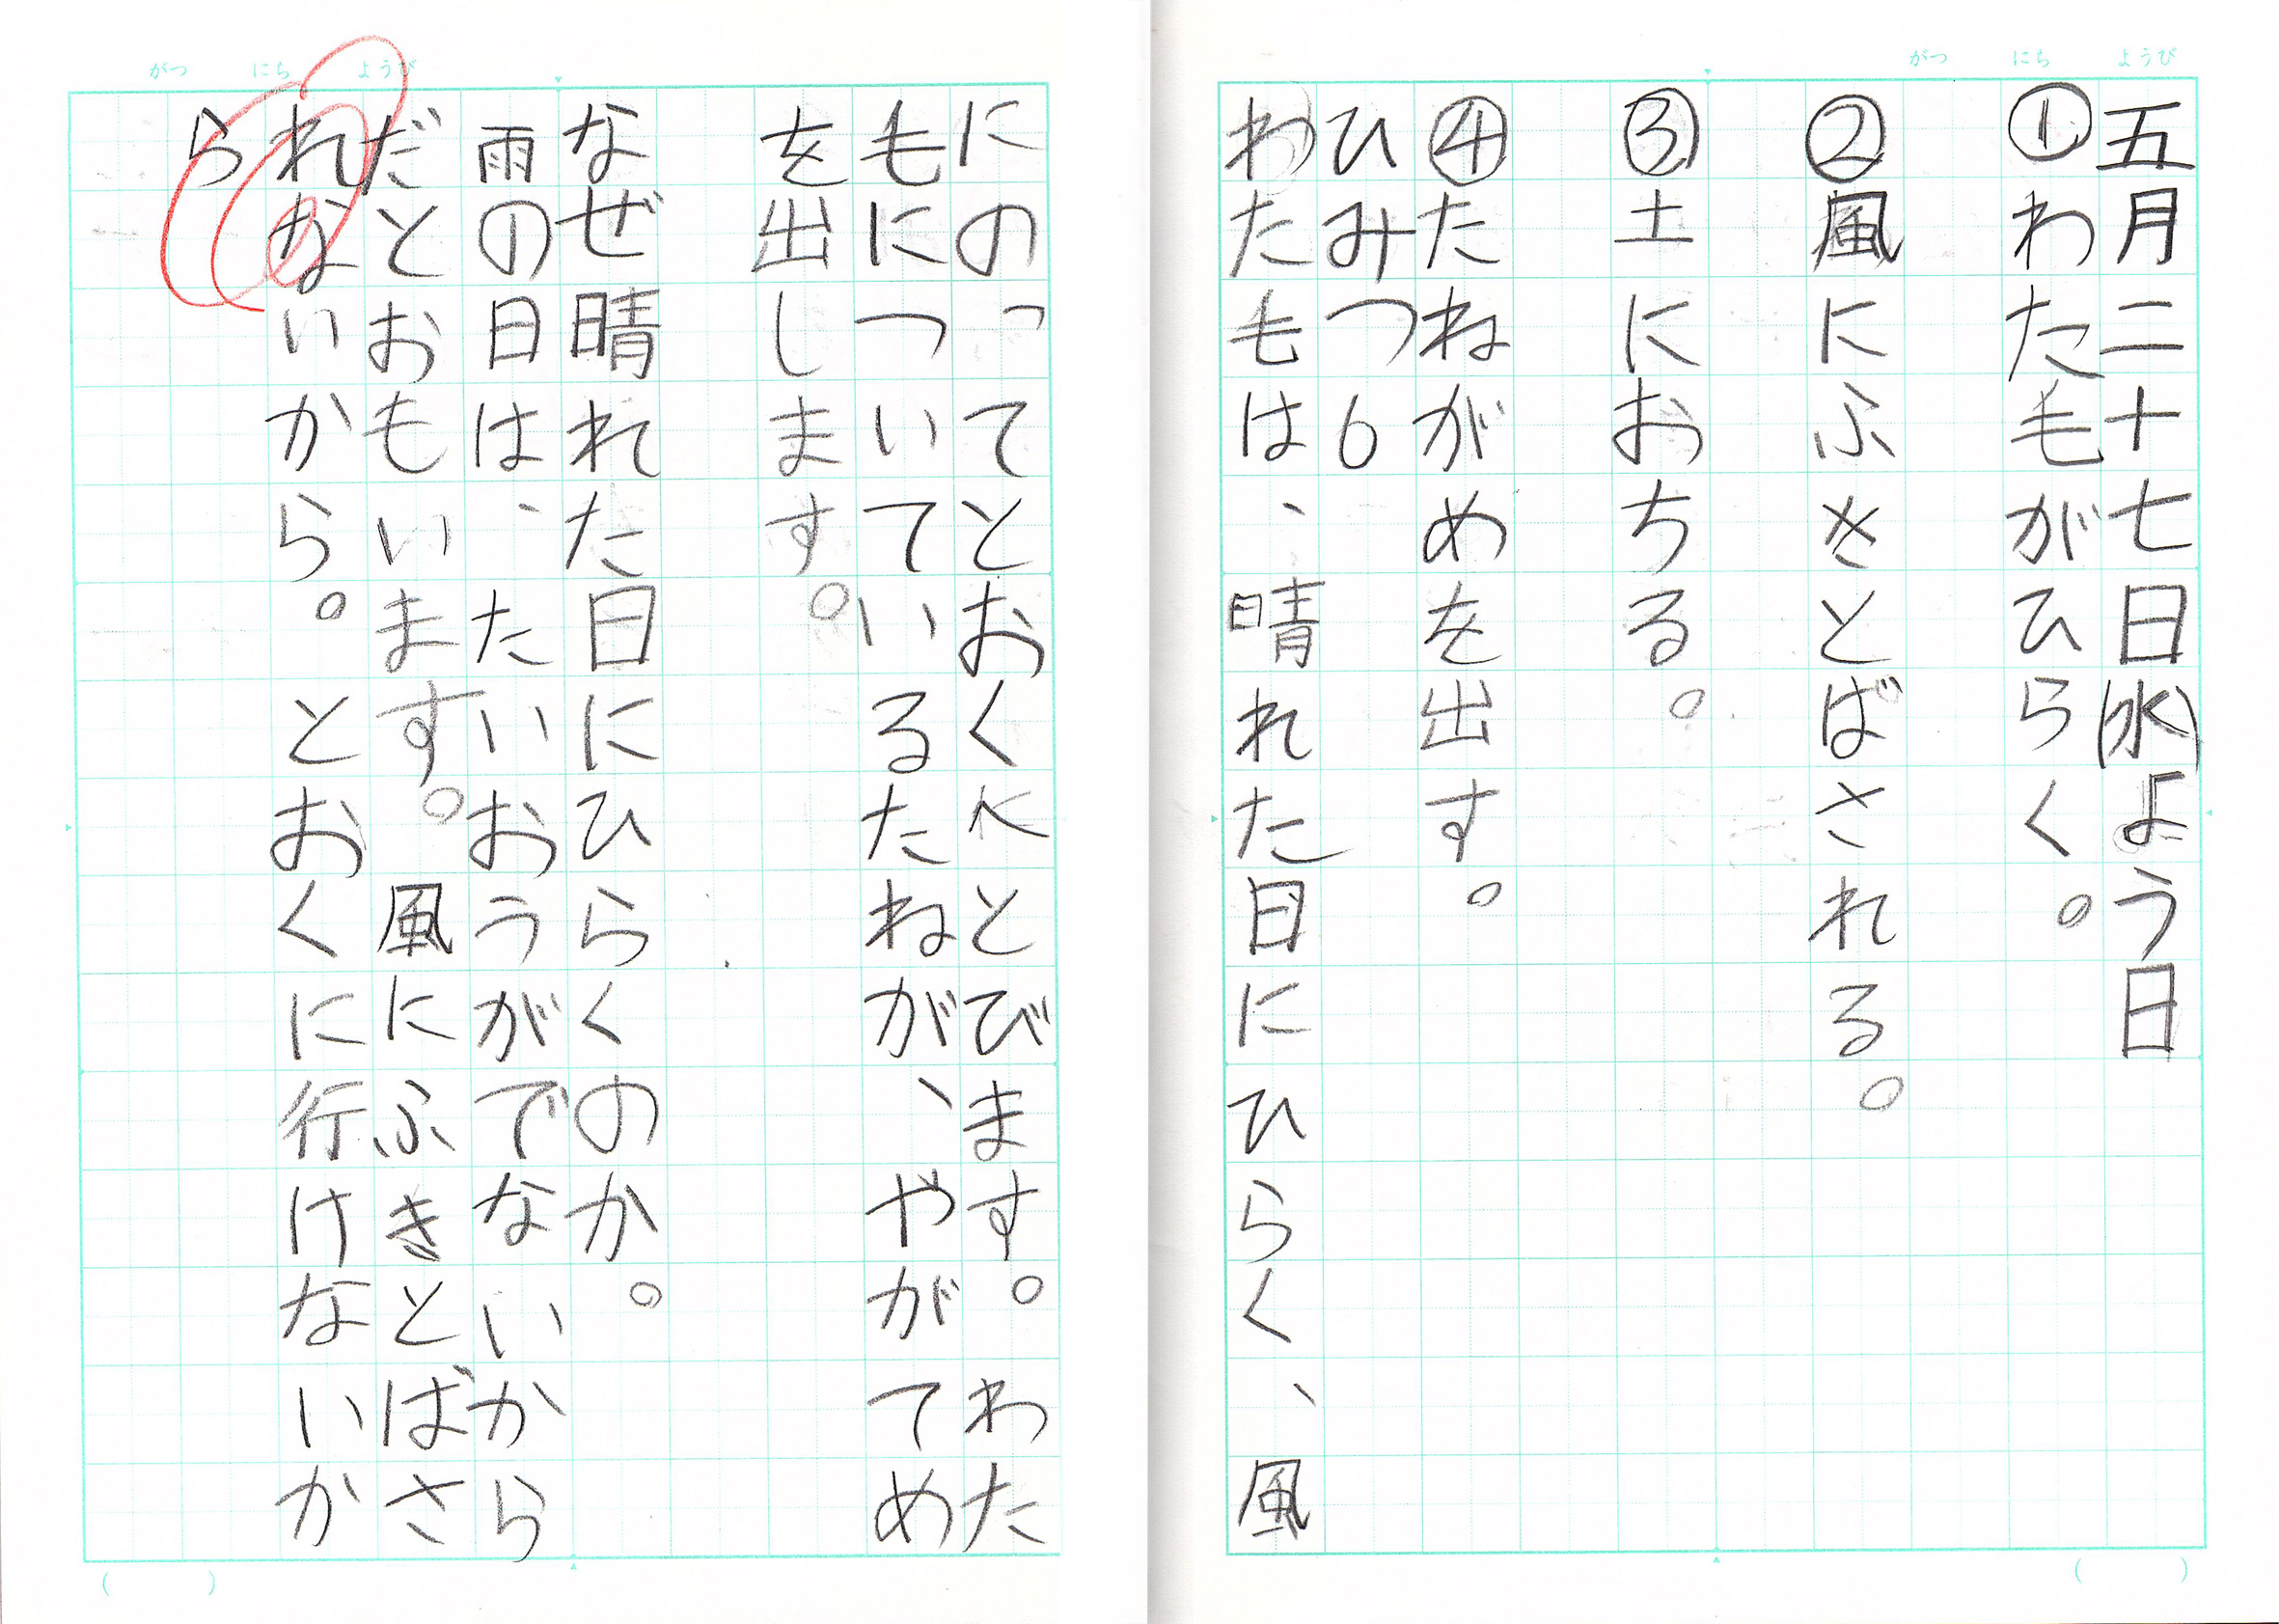 がつ にち ようび
五月二十七日(水)よう日
①わた毛がひらく。
②風にふきとばされる。
③土におちる。
④たねがめを出す。
ひみつ6
わた毛は、晴れた日にひらく、風
がつ にち ようび
にのってとおくへとびます。わた
もについているたねが、やがてめ
を出します。
なぜ晴れた日にひらくのか。
雨の日は、たいおうがでないから
だとおもいます。風にふきとばさ
れないから。とおくに行けないか
ら